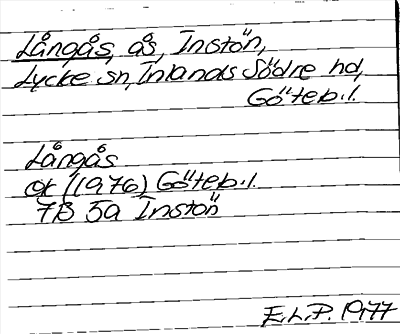 Långås, ås, Instön,
Lycke sn, Inlands Södre hd,
Göteb.l.
Långås
ek (1976) Göteb.l.
7B 5a Instön
E.L.P. 1977